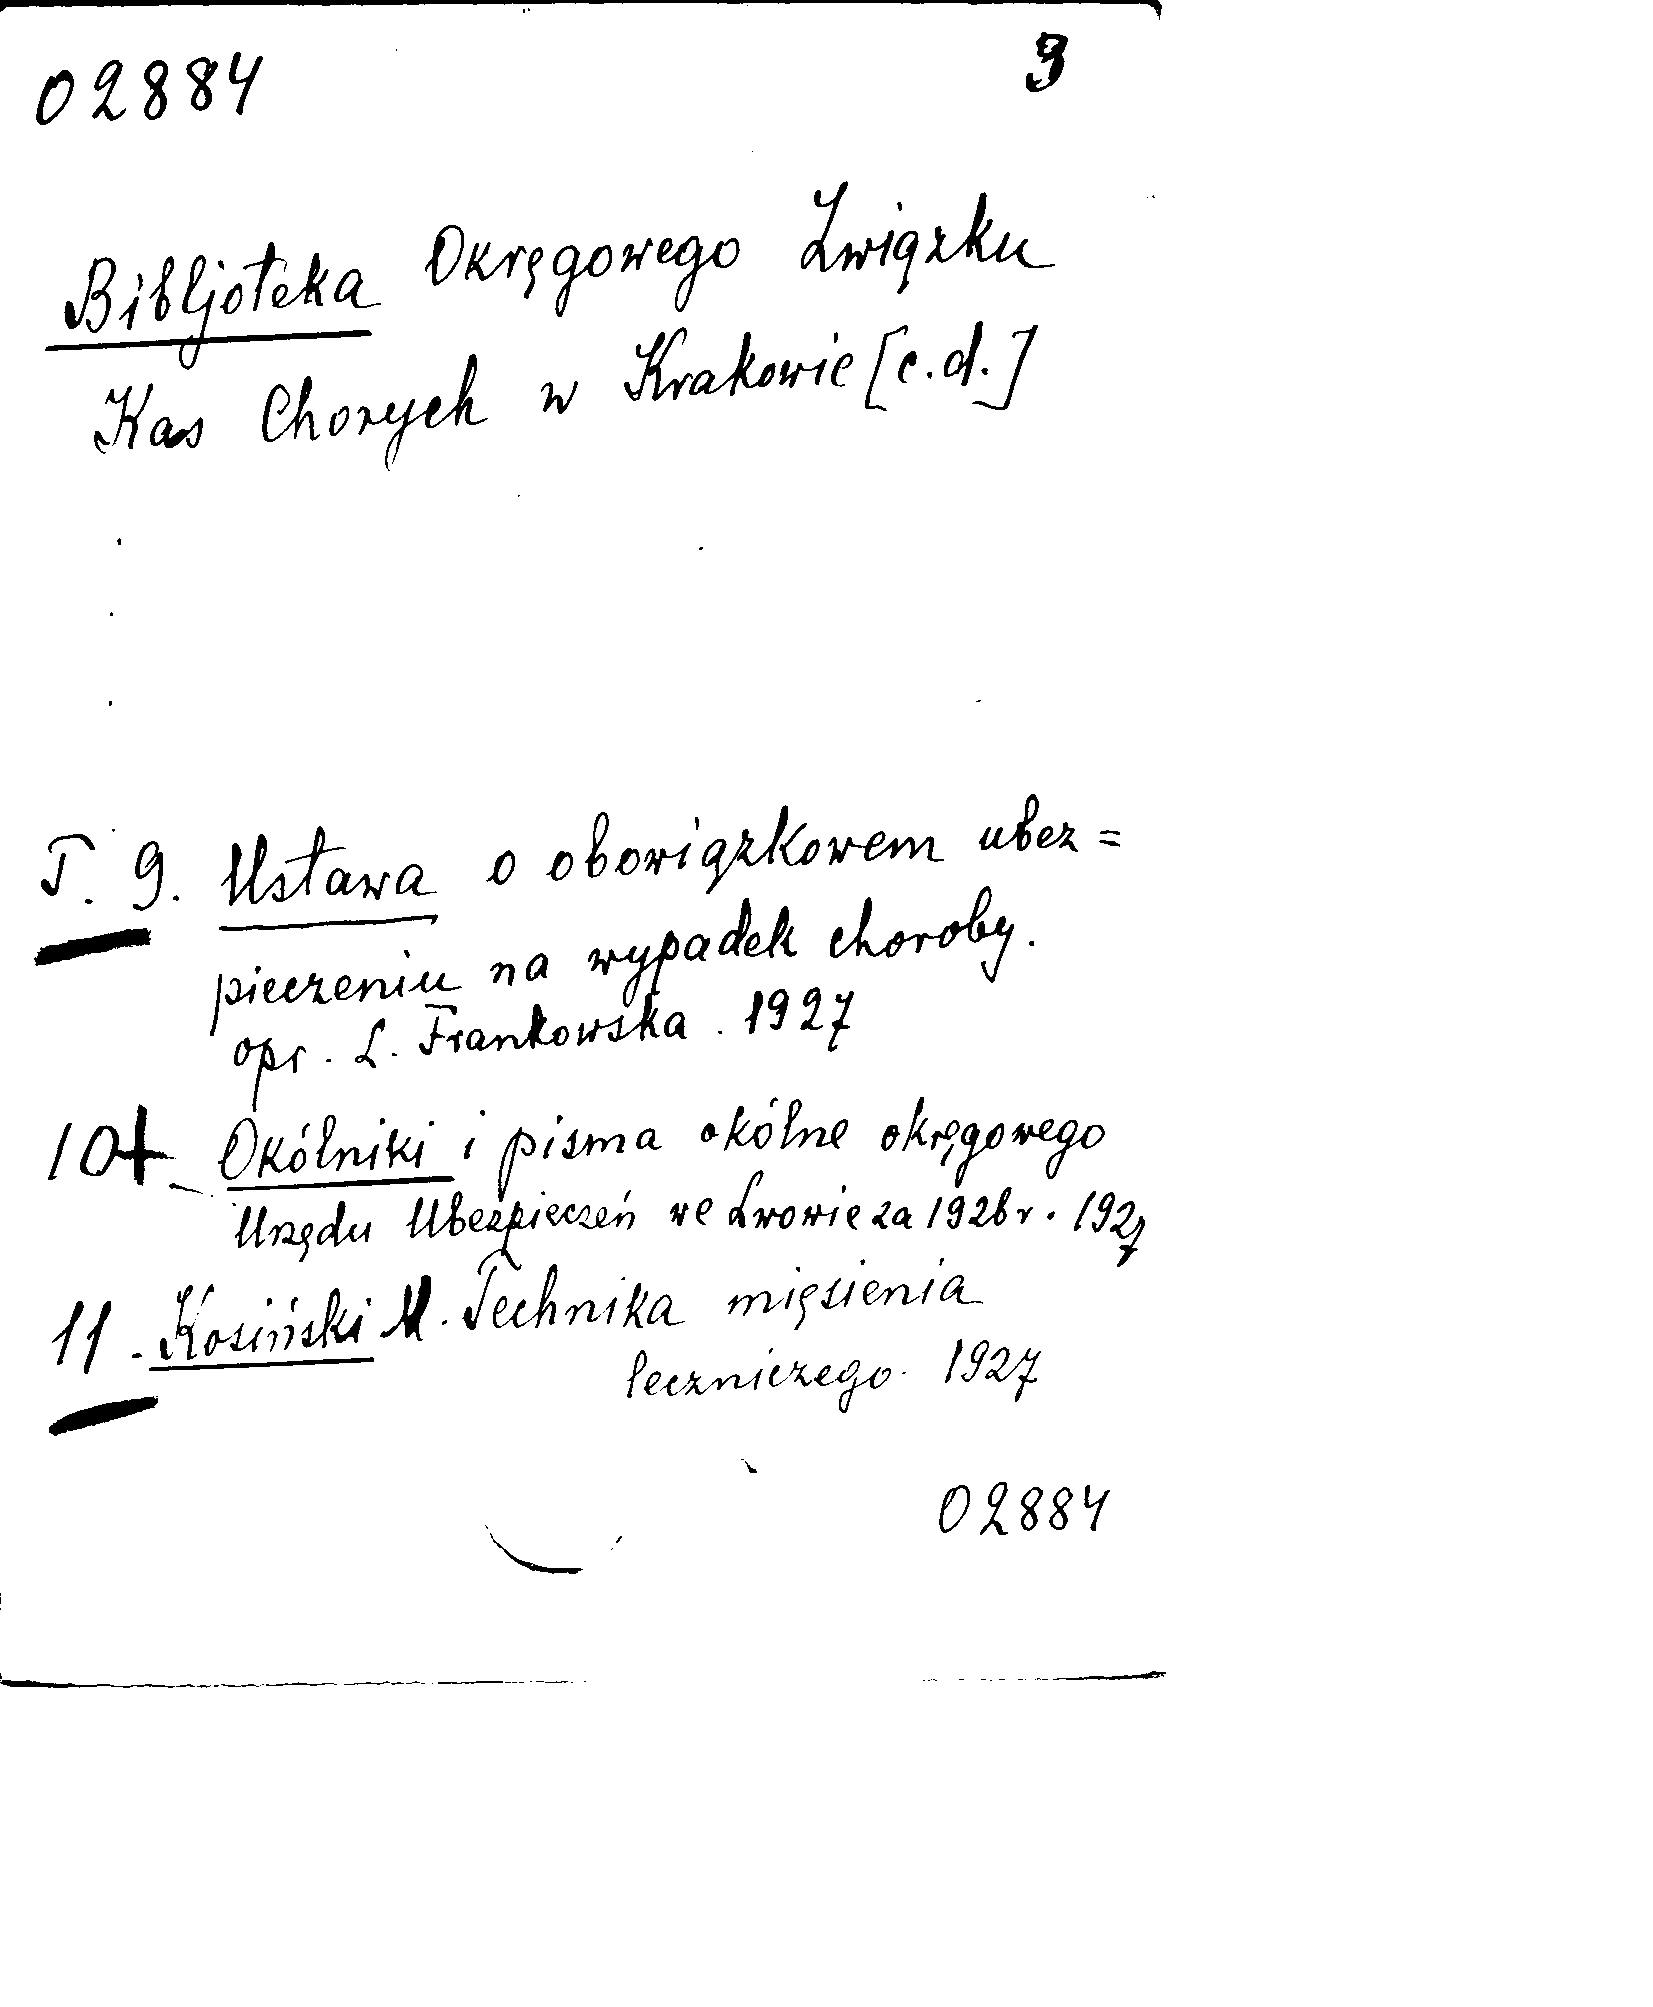 02884 3
Bibljoteka Okręgowego Związku
Kas Chorych w Krakowie [c.d.]
T. 9. Ustawa o obowiązkowem ubez=
pieczeniu na wypadek choroby.
opr. L. Frankowska. 1927
10+ Okólniki i pisma okólne okręgowego
Urzędu Ubezpieczeń we Lwowie za 1926 r. 1927
11. Kosiński M. Technika mięsienia
leczniczego. 1927
02884